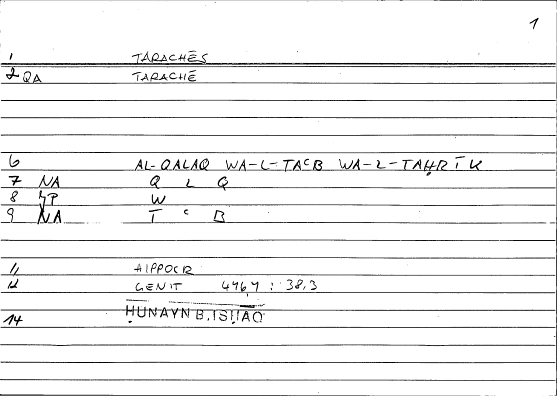 1
1 TARACHĒS
2 QA TARACHĒ
6 AL-QALAQ WA-L-TAᶜB WA-L-TAḤRĪK
7 NA Q L Q
8 SP W
9 NA T ᶜ B
11 HIPPOCR
12 GENIT 476,7 : 38,3
14 ḤUNAYN B. ISḤĀQ